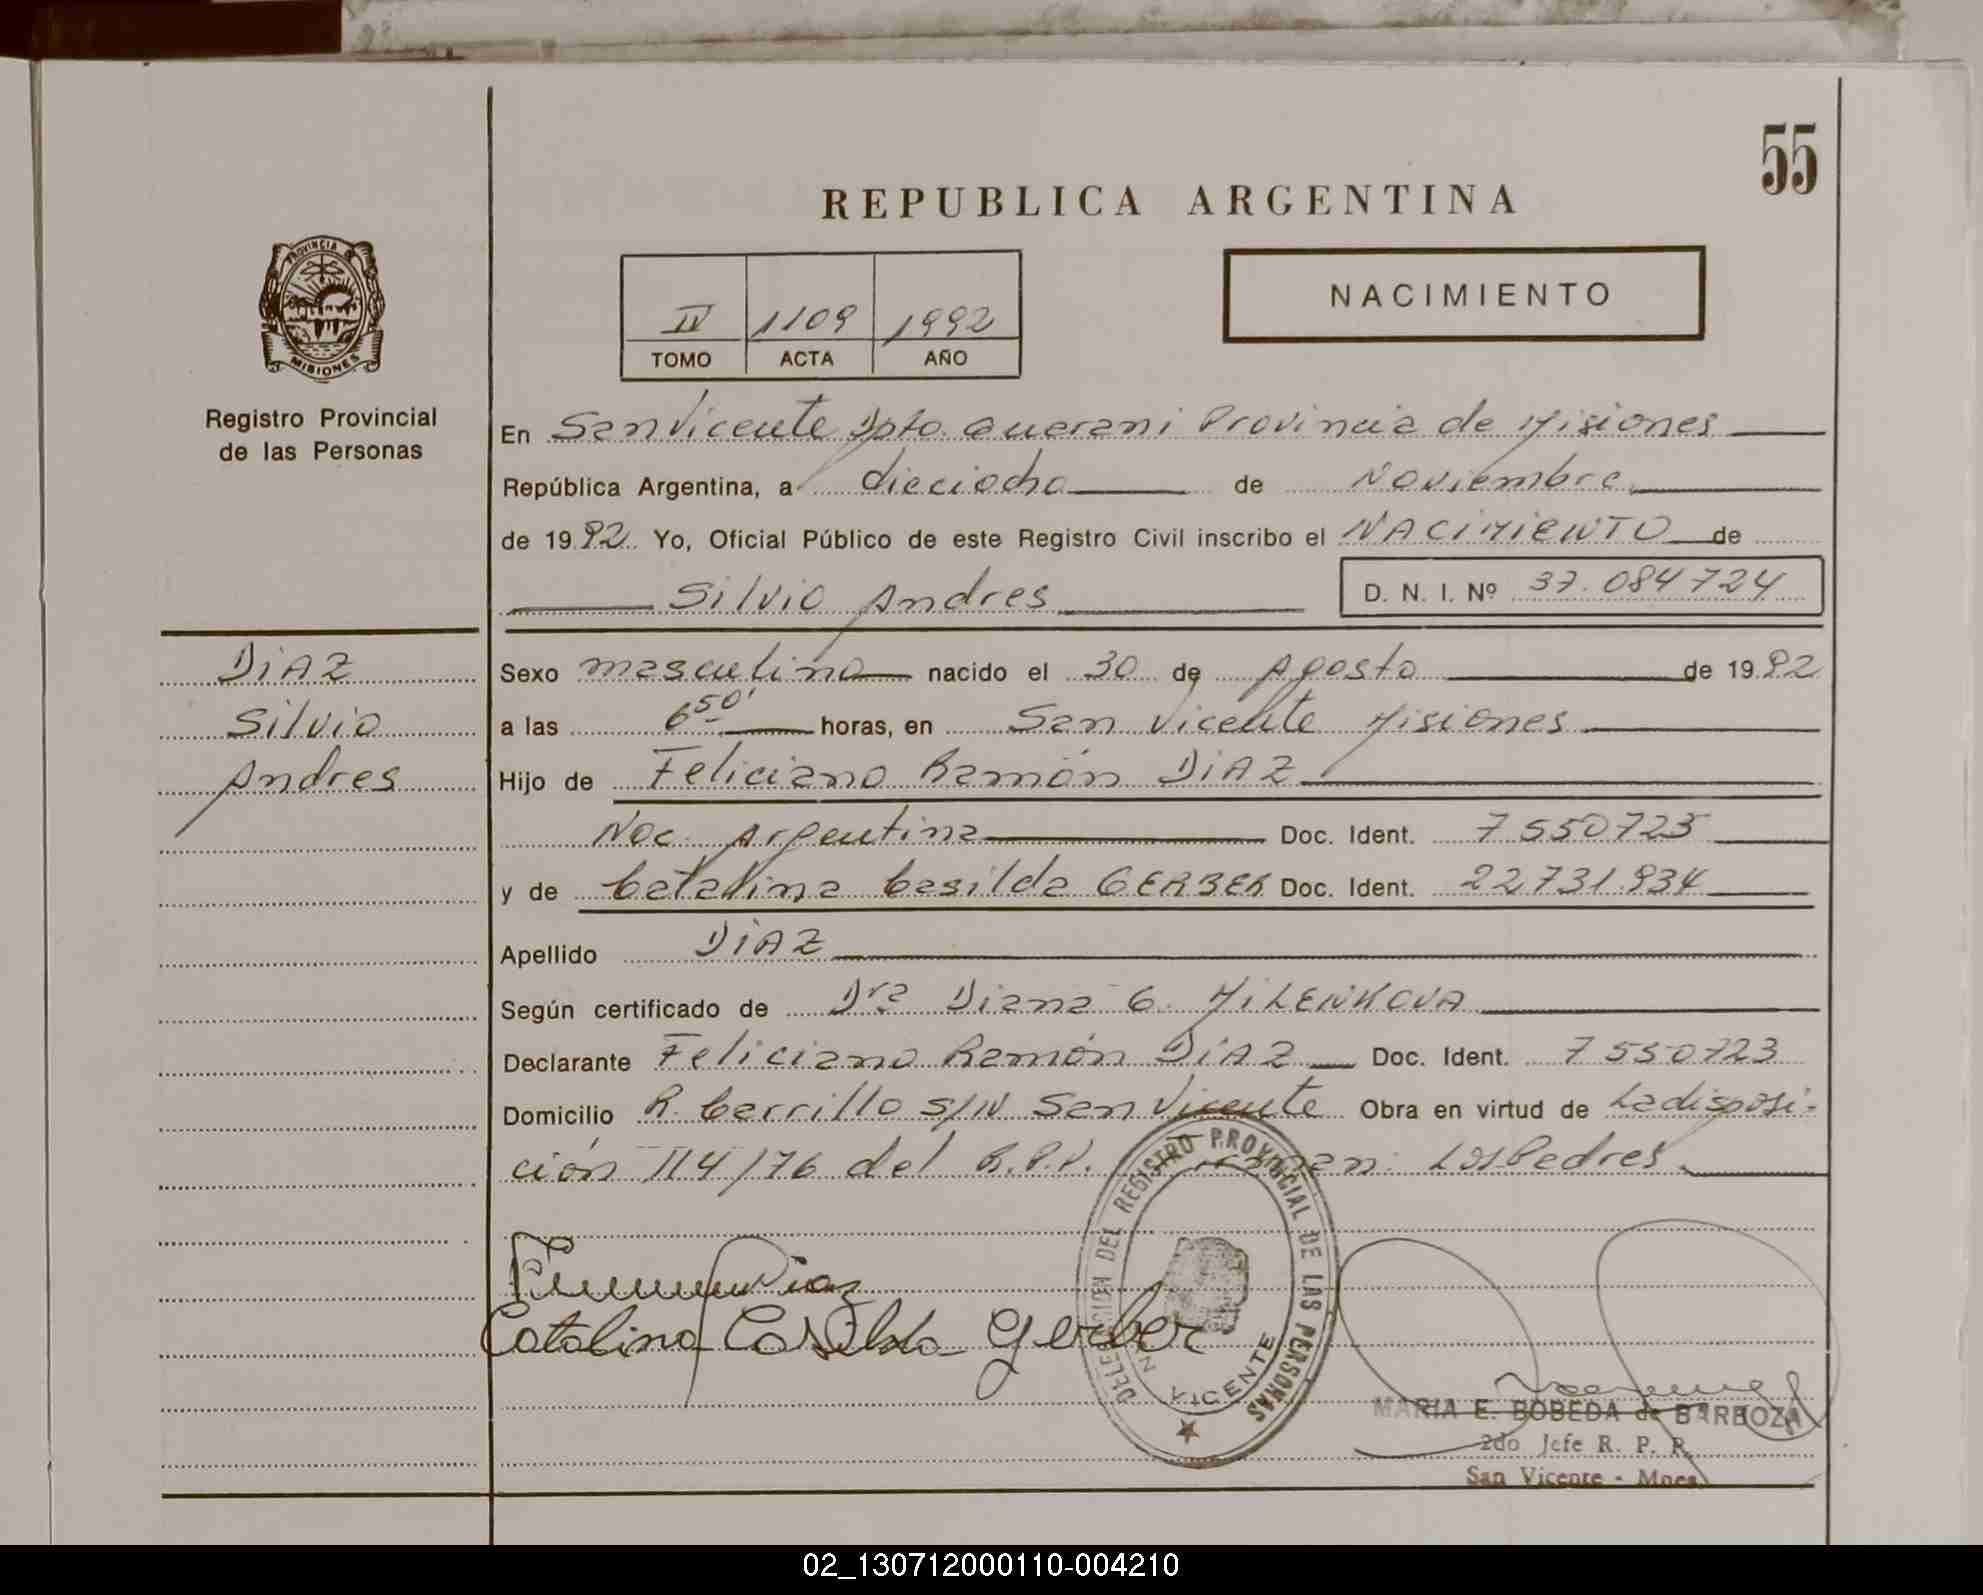 55
REPUBLICA ARGENTINA
PROVINCIA
MISIONES
Registro Provincial
de las Personas
IV 1109 1992
TOMO ACTA AÑO
NACIMIENTO
En San Vicente Dpto. Guarani Provincia de Misiones
República Argentina, a dieciocho de Noviembre
de 1992 Yo, Oficial Público de este Registro Civil inscribo el NACIMIENTO de
Silvio Andres D. N. I. Nº 37.084724
DIAZ
Silvio
Andres
Sexo masculino nacido el 30 de Agosto de 1992
a las 6 50' horas, en San Vicente Misiones
Hijo de Feliciano Ramón DIAZ
Nac. Argentina Doc. Ident. 7550723
y de Catalina Casilda GERBER Doc. Ident. 22731.934
Apellido DIAZ
Según certificado de Dra Diana G. MILENKOVA
Declarante Feliciano Ramón DIAZ Doc. Ident. 7550723
Domicilio R. Carrillo S/N San Vicente Obra en virtud de La disposi-
ción 114/76 del R.P.P. Firman: Los Padres
Diaz
Catalina Casilda Gerber
DELEGACION DEL REGISTRO PROVINCIAL DE LAS PERSONAS
VICENTE
MARIA E. BOBEDA de BARBOZA
2do Jefe R. P. P.
San Vicente - Mnes
02_130712000110-004210